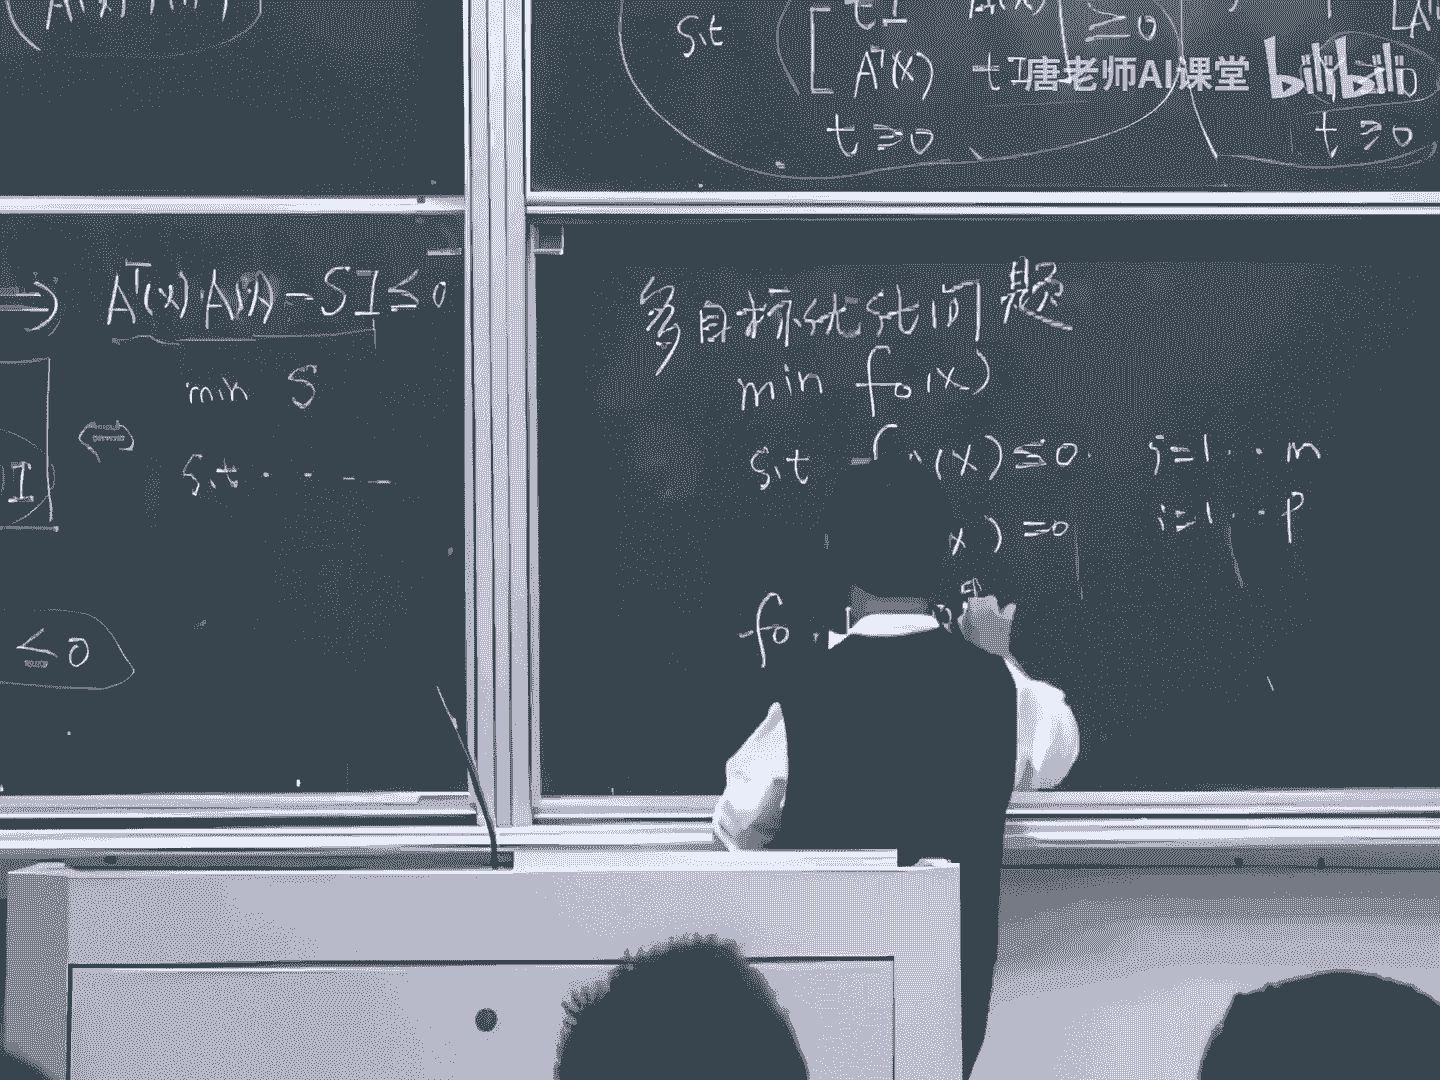 (A^T(x) A(x))
s.t [ tI A(x)
A^T(x) tI ] ≥0
t ≥0
t ≥0
唐老师AI课堂 bilibili
⇒ A^T(x) A(x) - SI ≤ 0
min S
⇔
s.t . . . - - -
I
≤ 0
多目标优化问题
min f₀(x)
s.t f (x) ≤ 0. i=1...m
(x) =0 i=1...p
f₀